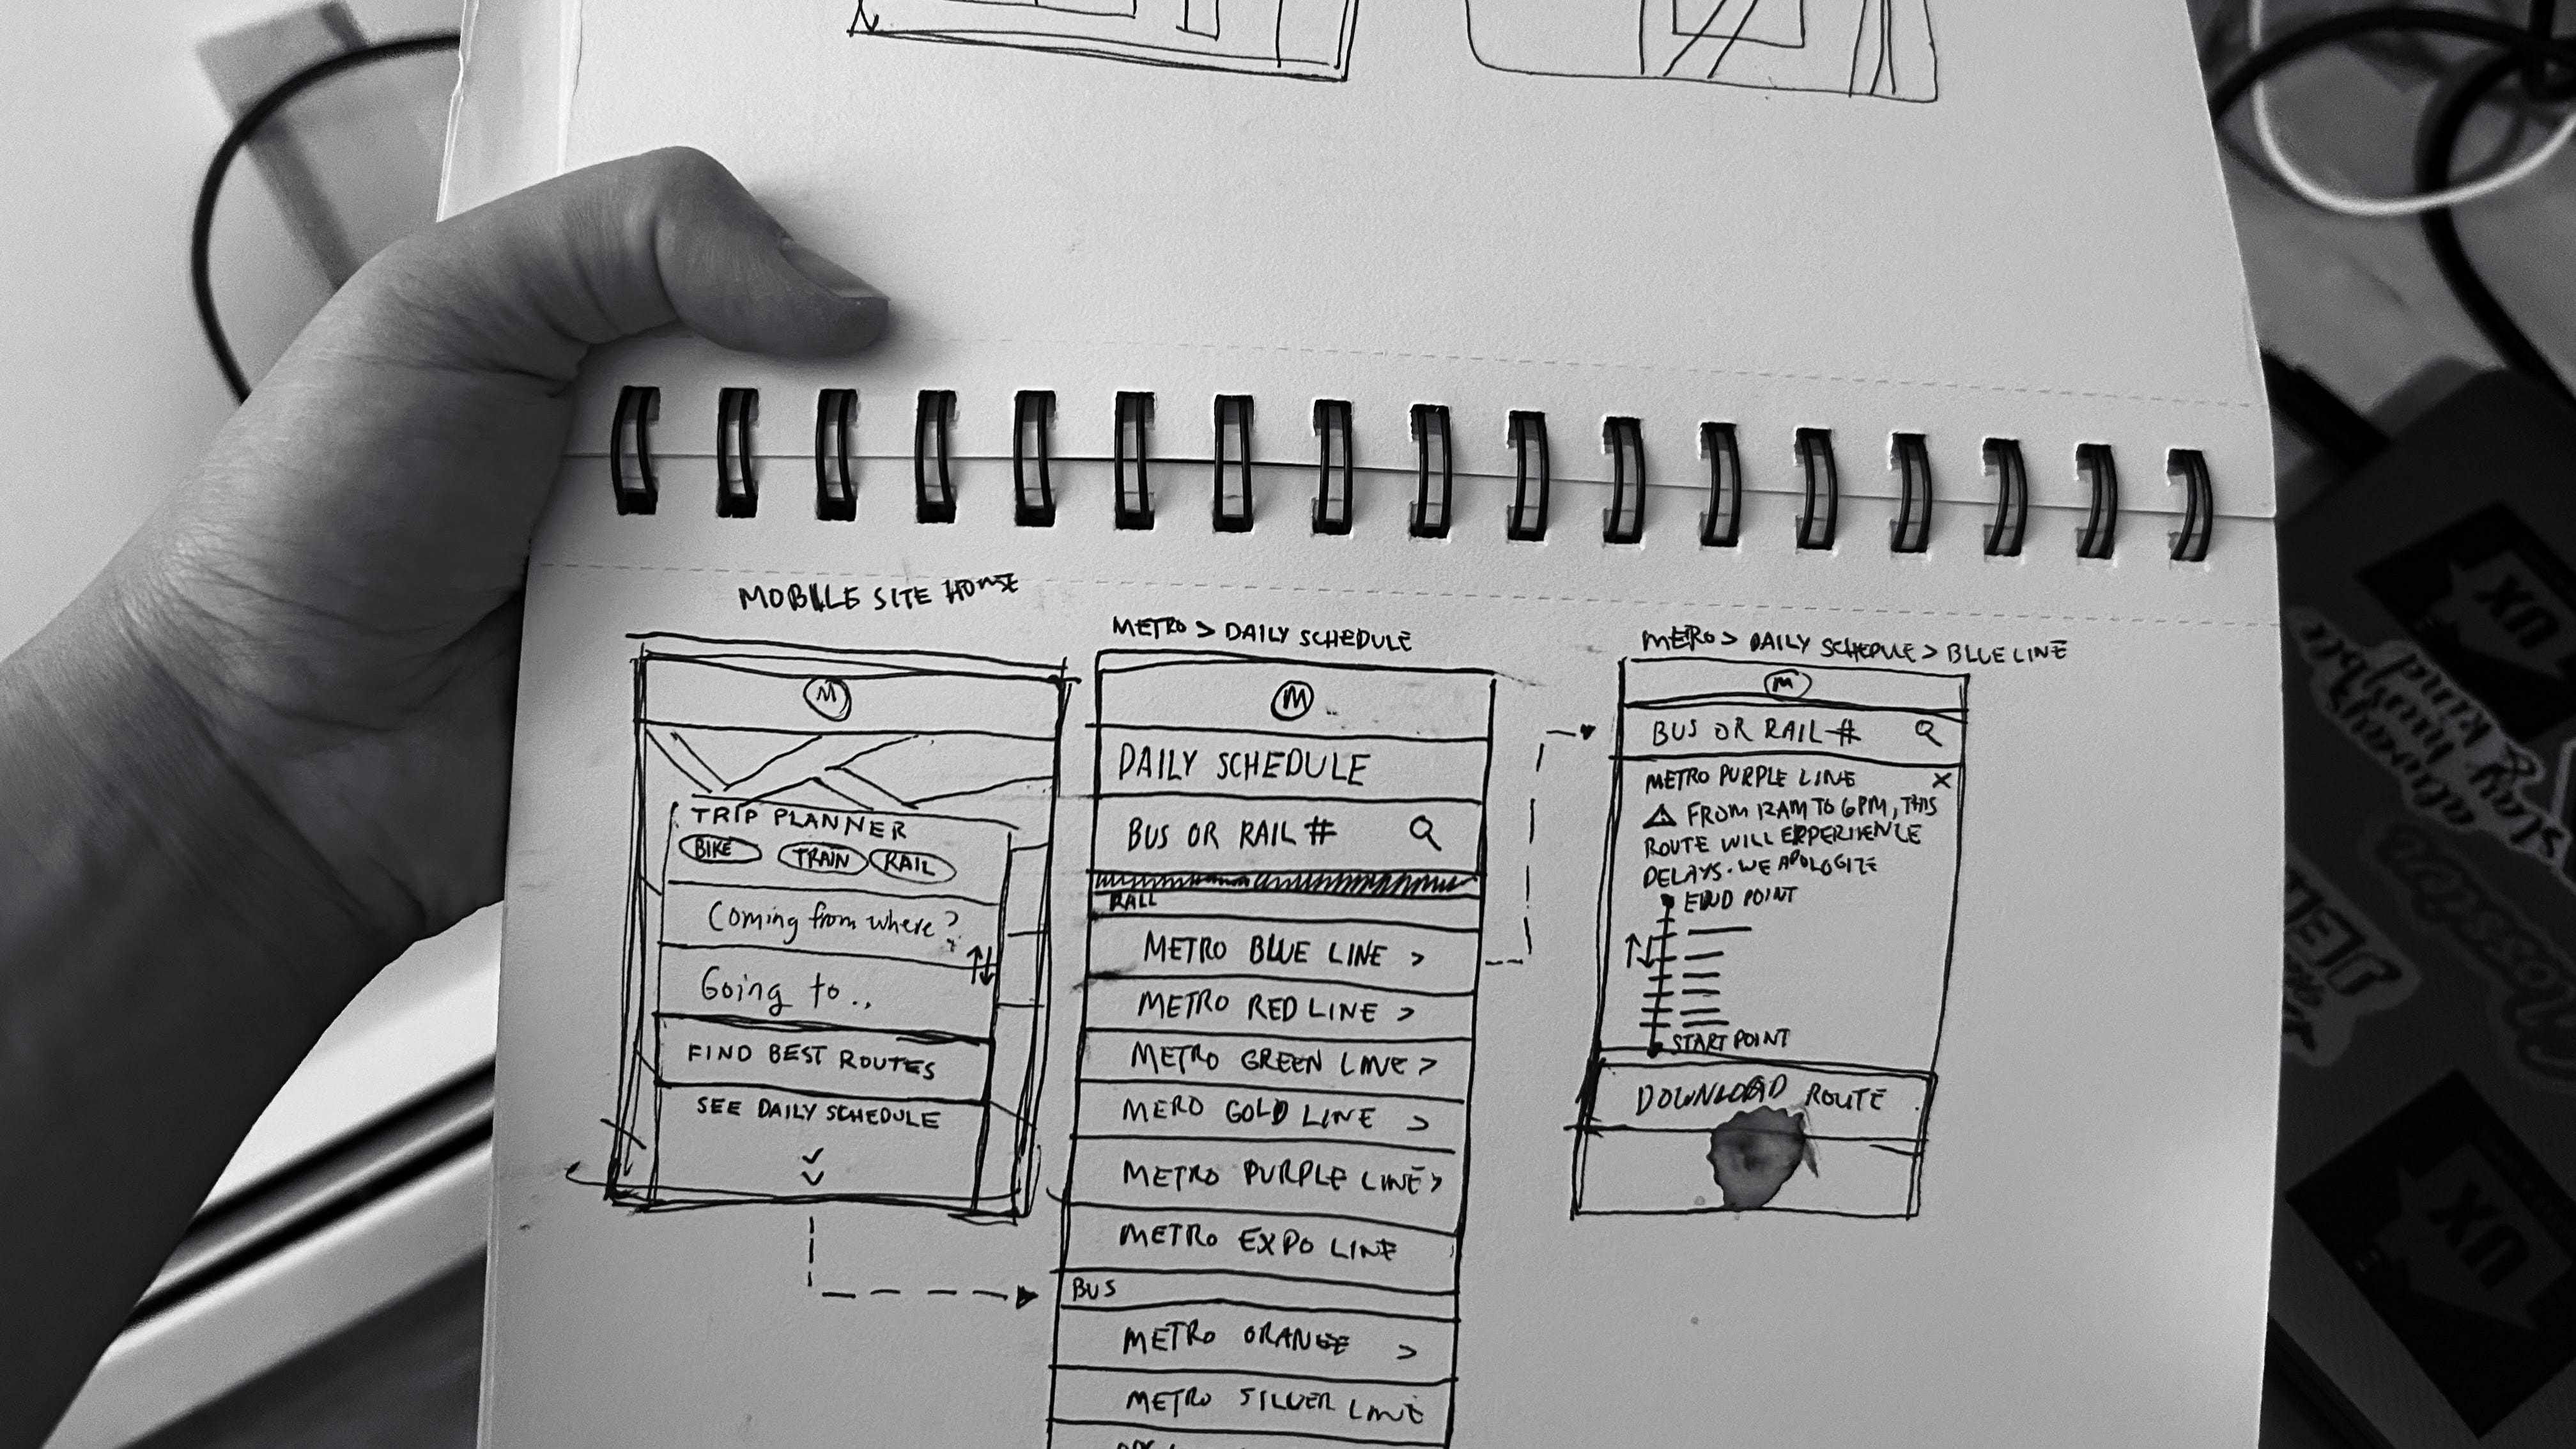 MOBILE SITE HOME
M
TRIP PLANNER
BIKE TRAIN RAIL
Coming from where?
Going to..
FIND BEST ROUTES
SEE DAILY SCHEDULE
METRO > DAILY SCHEDULE
M
DAILY SCHEDULE
BUS OR RAIL #
RAIL
METRO BLUE LINE >
METRO RED LINE >
METRO GREEN LINE >
MERO GOLD LINE >
METRO PURPLE LINE >
METRO EXPO LINE
BUS
METRO ORANGE >
METRO SILVER LINE
METRO > DAILY SCHEDULE > BLUE LINE
M
BUS OR RAIL #
METRO PURPLE LINE X
FROM 12AM TO 6PM, THIS
ROUTE WILL EXPERIENCE
DELAYS. WE APOLOGIZE
END POINT
START POINT
DOWNLOAD ROUTE
UX
always
hustle
slay
kind
UX